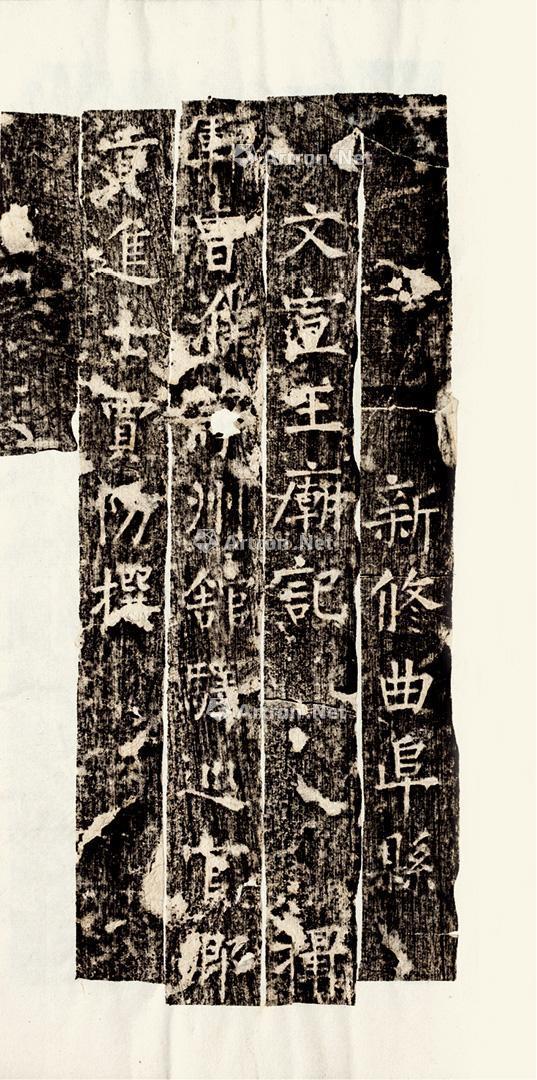 新修曲阜縣
文宣王廟記 攝
鄆曹濮等州館驛巡官鄉
貢進士賈防撰
Artron.Net
Artron.Net
Artron.Net